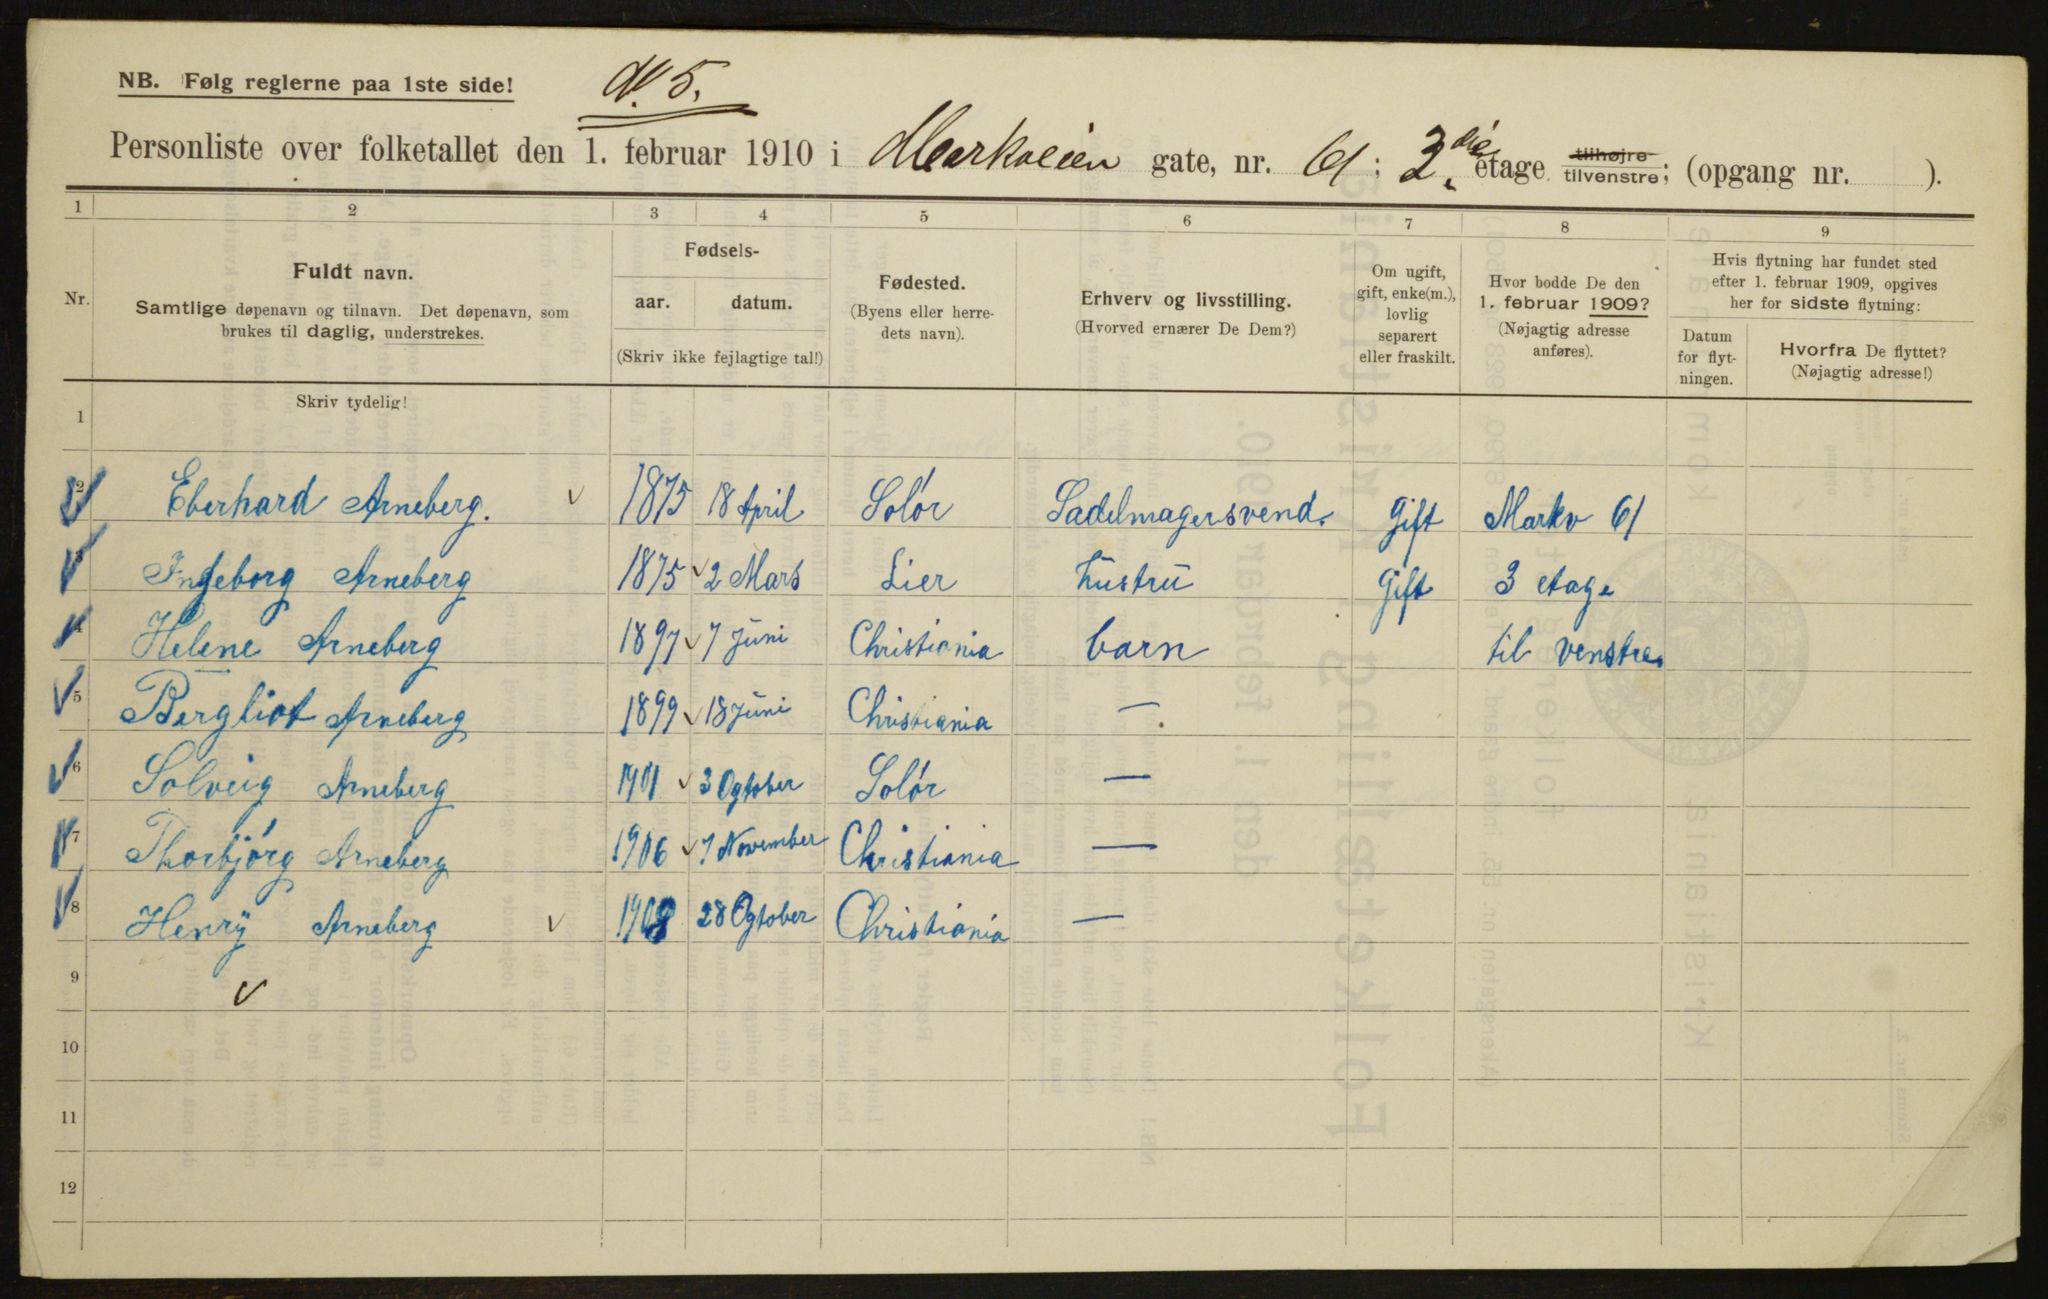 NB. Følg reglerne paa 1ste side!
N. 5.
Personliste over folketallet den 1. februar 1910 i Markveien gate, nr. 61 : 3. die etage tilhøjre tilvenstre; (opgang nr. ).
1 2 3 4 5 6 7 8 9
Nr.
Fuldt navn.
Samtlige døpenavn og tilnavn. Det døpenavn, som
brukes til daglig, understrekes.
Fødsels-
aar. datum.
(Skriv ikke fejlagtige tal!)
Fødested.
(Byens eller herre-
dets navn).
Erhverv og livsstilling.
(Hvorved ernærer De Dem?)
Om ugift,
gift, enke(m.),
lovlig
separert
eller fraskilt.
Hvor bodde De den
1. februar 1909?
(Nøjagtig adresse
anføres).
Hvis flytning har fundet sted
efter 1. februar 1909, opgives
her for sidste flytning:
Datum
for flyt-
ningen.
Hvorfra De flyttet?
(Nøjagtig adresse!)
Skriv tydelig!
1
2 Eberhard Arneberg. 1875 18 April Solør Sadelmagersvend. Gift Markv 61
3 Ingeborg Arneberg 1875 2 Mars Lier Hustru Gift 3 etage
4 Helene Arneberg 1897 7 Juni Christiania barn til venstre.
5 Bergliot Arneberg 1899 18 Juni Christiania —
6 Solveig Arneberg 1901 3 Ogtober Solør —
7 Thorbjørg Arneberg 1906 7 November Christiania —
8 Henry Arneberg 1908 28 Ogtober Christiania —
9
10
11
12